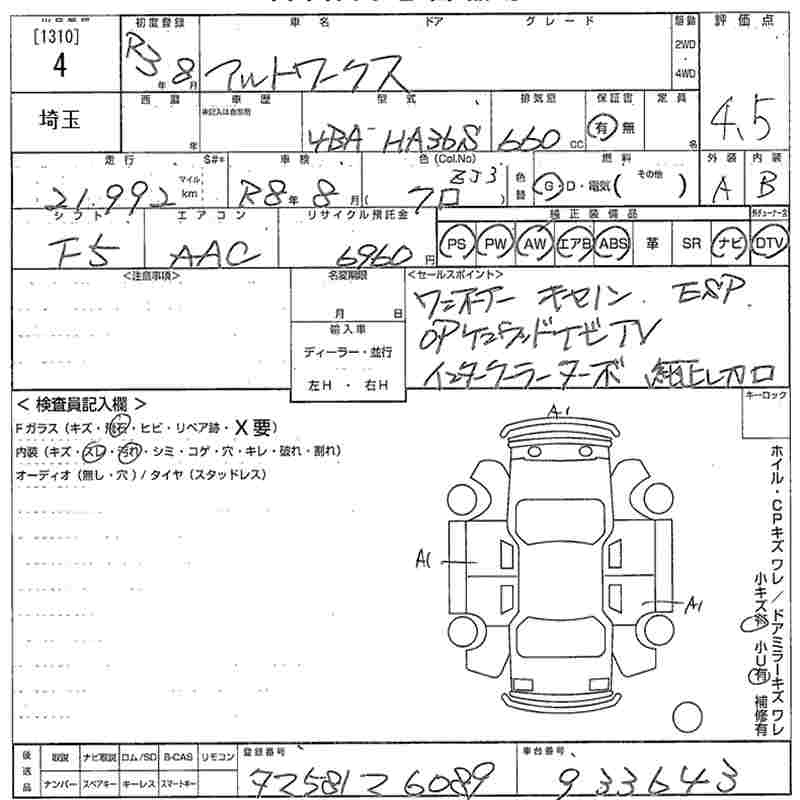 [1310]
4
埼玉
初度登録 車名 ドア グレード 駆動 評価点
R3年 8月 アルトワークス 2WD 4WD 4.5
西暦 車歴 型式 排気量 保証書 定員
年 未記入は自家用 4BA-HA36S 660cc 有 無 名
走行 S#* 車検 色(Col.No) 燃料 外装 内装
21,992 マイル km R8年 8月 ( クロ ZJ3 ) 色替 G・D・電気( その他 ) A B
シフト エアコン リサイクル預託金 純正装備品
F5 AAC 6960円 PS PW AW エアB ABS 革 SR ナビ DTV
<注意事項> 名変期限 <セールスポイント>
月 日
輸入車
ディーラー・並行
左H ・ 右H
ワンオーナー キセノン ESP
OP ナビTV
インタークーラーターボ 純正レカロ
キーロック
< 検査員記入欄 >
Fガラス(キズ・飛石・ヒビ・リペア跡・X要)
内装(キズ・スレ・汚れ・シミ・コゲ・穴・キレ・破れ・割れ)
オーディオ(無し・穴)/タイヤ(スタッドレス)
A1
A1
A1
ホイル・CPキズワレ/ドアミラーキズワレ
小キズ 小U有 補修有
後送品 取説 ナビ取説 ロム/SD B-CAS リモコン
ナンバー スペアキー キーレス スマートキー
登録番号 車台番号
7258126089 933643